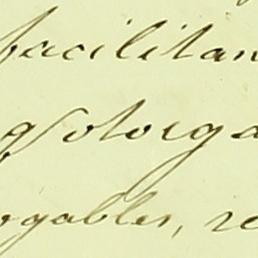 facilitan
y otorga
ogables, re